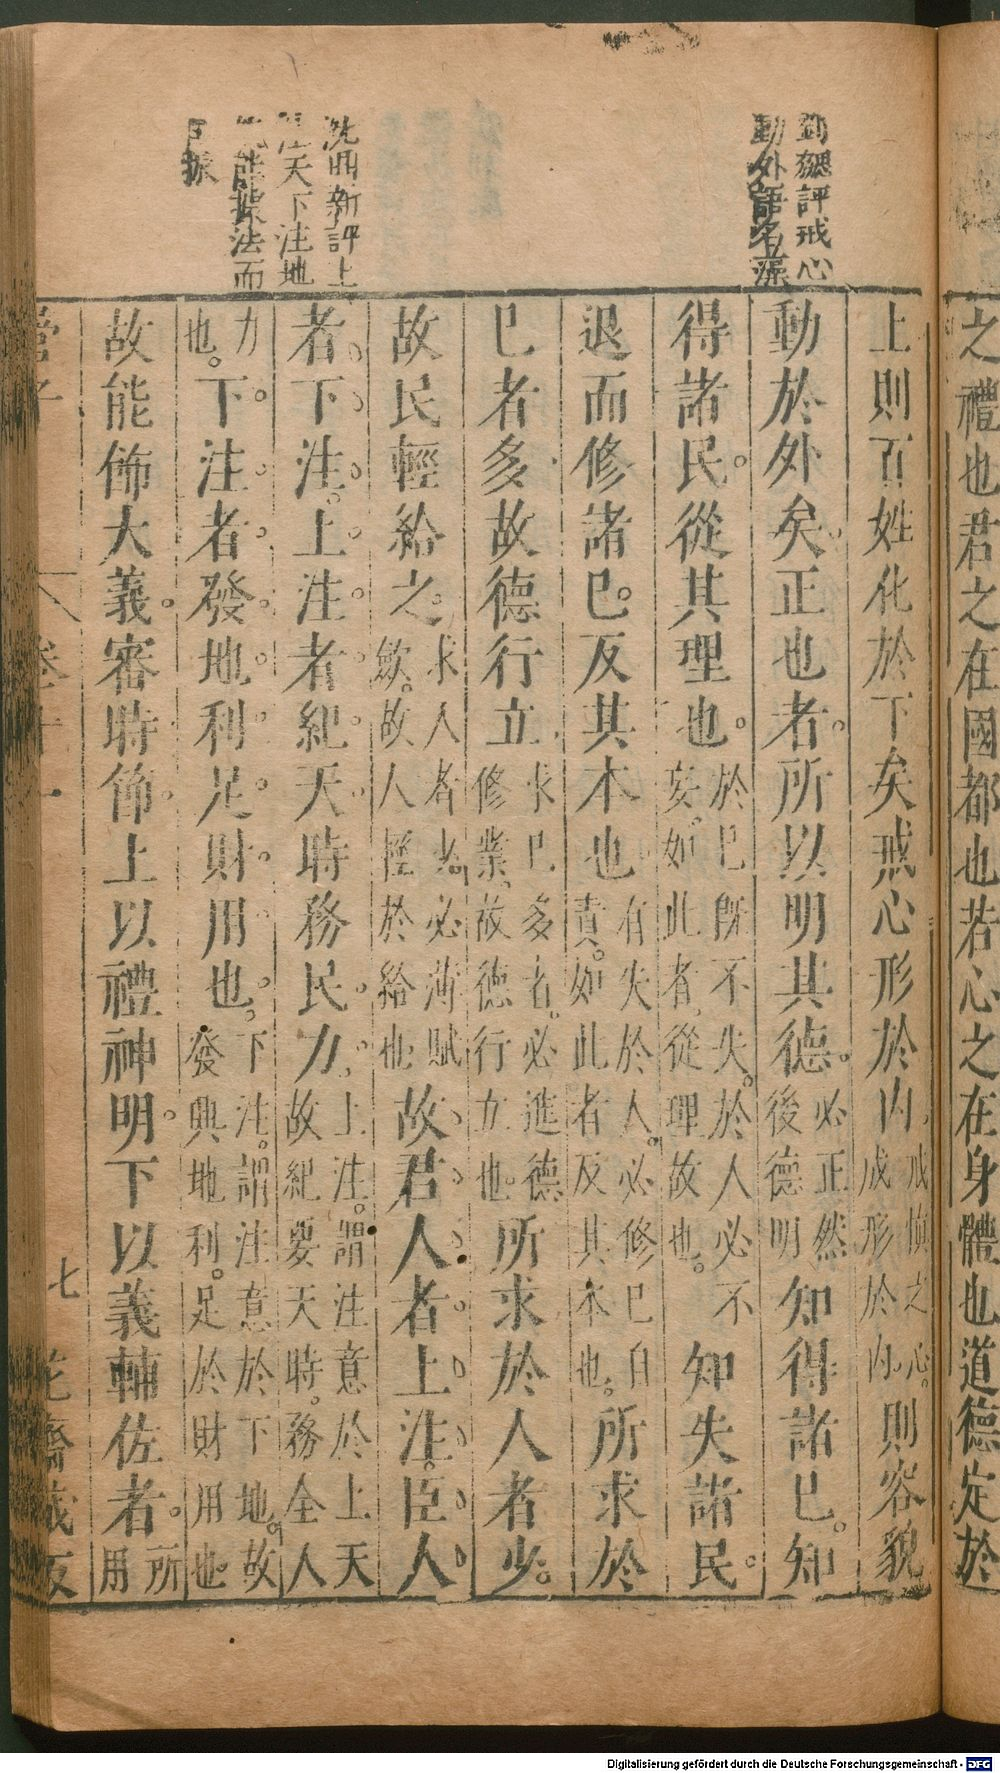 之禮也君之在國都也若心之在身體也道德定於
上則百姓化於下矣戒心形於內戒慎之心成形於內則容貌
動於外矣正也者所以明其德必正然後德明知得諸已知
得諸民從其理也於已既不失於人必不妄如此者從理故也知失諸民
退而修諸已反其本也有失於人必修已自責如此者反其本也所求於
已者多故德行立求已多者必進德修業故德行立也所求於人者少
故民輕給之求人者少必薄賦斂故人輕於給也故君人者上注臣人
者下注上注者紀天時務民力上注謂注意於上天故紀要天時務全人
力也下注者發地利足財用也下注謂注意於下地故發興地利足於財用也
故能飾大義審時節上以禮神明下以義輔佐者所用
劉勰評戒心
動外語名
沈鼎新評上
注天下注地
能法而
民振
管子
卷十一
七
花齋藏板
Digitalisierung gefördert durch die Deutsche Forschungsgemeinschaft - DFG